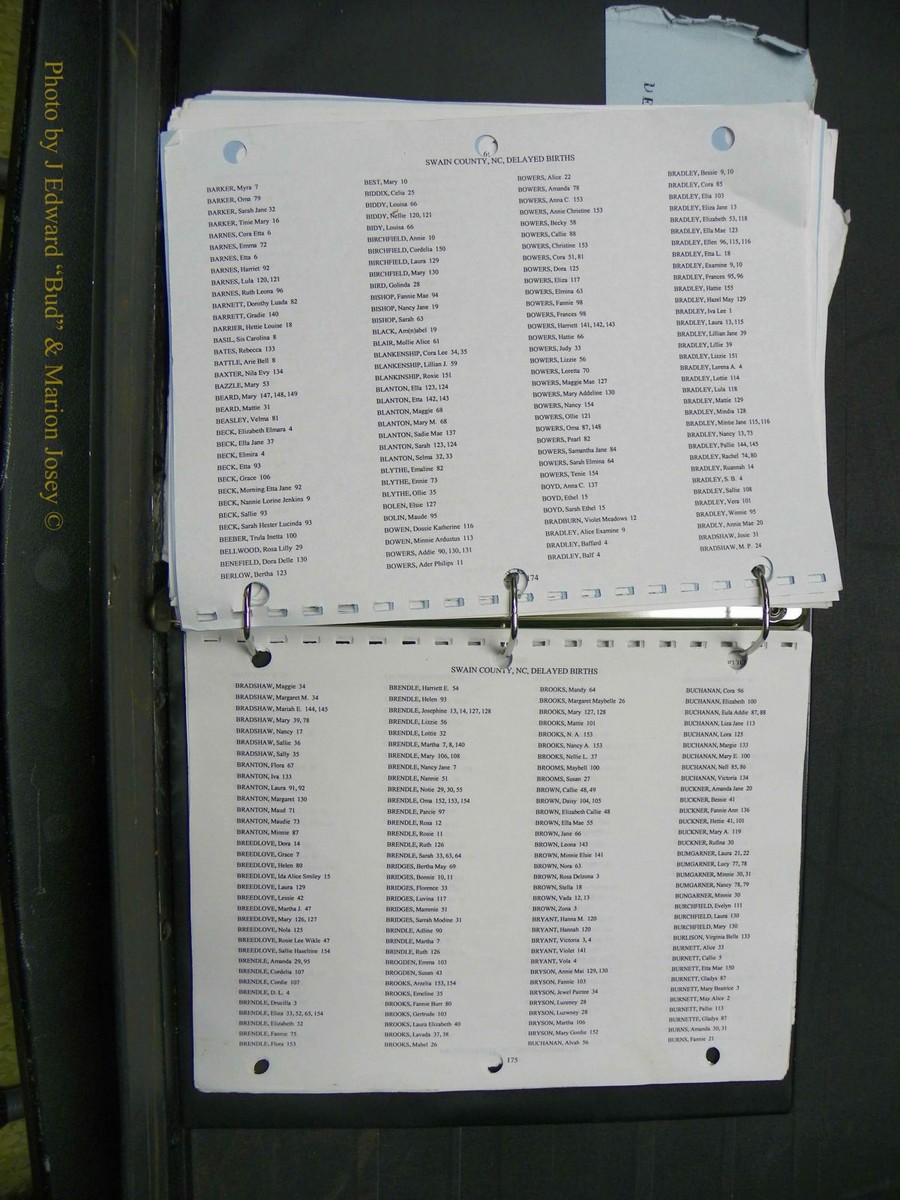 Photo by J Edward "Bud" & Marion Josey ©
SWAIN COUNTY, NC, DELAYED BIRTHS
BARKER, Myra 7
BARKER, Oma 79
BARKER, Sarah Jane 32
BARKER, Tinie Mary 16
BARNES, Cora Etta 6
BARNES, Emma 72
BARNES, Etta 6
BARNES, Harriet 92
BARNES, Lula 120, 121
BARNES, Ruth Leona 96
BARNETT, Dorothy Luada 82
BARRETT, Gradie 140
BARRIER, Hettie Louise 18
BASIL, Sis Carolina 8
BATES, Rebecca 133
BATTLE, Arie Bell 8
BAXTER, Nila Evy 134
BAZZLE, Mary 53
BEARD, Mary 147, 148, 149
BEARD, Mattie 31
BEASLEY, Velma 81
BECK, Elizabeth Elmara 4
BECK, Ella Jane 37
BECK, Elmira 4
BECK, Etta 93
BECK, Grace 106
BECK, Morning Etta Jane 92
BECK, Nannie Lorine Jenkins 9
BECK, Sallie 93
BECK, Sarah Hester Lucinda 93
BEEBER, Trula Inetta 100
BELLWOOD, Rosa Lilly 29
BENEFIELD, Dora Delle 130
BERLOW, Bertha 123
BEST, Mary 10
BIDDIX, Celia 25
BIDDY, Louisa 66
BIDDY, Nellie 120, 121
BIDY, Louisa 66
BIRCHFIELD, Annie 10
BIRCHFIELD, Cordelia 150
BIRCHFIELD, Laura 129
BIRCHFIELD, Mary 130
BIRD, Golinda 28
BISHOP, Fannie Mae 94
BISHOP, Nancy Jane 19
BISHOP, Sarah 63
BLACK, Am(n)abel 19
BLAIR, Mollie Alice 61
BLANKENSHIP, Cora Lee 34, 35
BLANKENSHIP, Lillian J. 59
BLANKINSHIP, Roxie 151
BLANTON, Ella 123, 124
BLANTON, Etta 142, 143
BLANTON, Maggie 68
BLANTON, Mary M. 68
BLANTON, Sadie Mae 137
BLANTON, Sarah 123, 124
BLANTON, Selma 32, 33
BLYTHE, Emaline 82
BLYTHE, Ennie 73
BLYTHE, Ollie 35
BOLEN, Elsie 127
BOLIN, Maude 95
BOWEN, Dossie Katherine 116
BOWEN, Minnie Ardustus 113
BOWERS, Addie 90, 130, 131
BOWERS, Ader Philips 11
BOWERS, Alice 22
BOWERS, Amanda 78
BOWERS, Anna C. 153
BOWERS, Annie Christine 153
BOWERS, Becky 58
BOWERS, Callie 88
BOWERS, Christine 153
BOWERS, Cora 51, 81
BOWERS, Dora 125
BOWERS, Eliza 117
BOWERS, Elmina 63
BOWERS, Fannie 98
BOWERS, Frances 98
BOWERS, Harriett 141, 142, 143
BOWERS, Hattie 66
BOWERS, Judy 33
BOWERS, Lizzie 56
BOWERS, Loretta 70
BOWERS, Maggie Mae 127
BOWERS, Mary Addeline 130
BOWERS, Nancy 154
BOWERS, Ollie 121
BOWERS, Oma 87, 148
BOWERS, Pearl 82
BOWERS, Samantha Jane 84
BOWERS, Sarah Elmina 64
BOWERS, Tenie 154
BOYD, Anna C. 137
BOYD, Ethel 15
BOYD, Sarah Ethel 15
BRADBURN, Violet Meadows 12
BRADLEY, Alice Examine 9
BRADLEY, Baffard 4
BRADLEY, Balf 4
BRADLEY, Bessie 9, 10
BRADLEY, Cora 85
BRADLEY, Elia 103
BRADLEY, Eliza Jane 13
BRADLEY, Elizabeth 53, 118
BRADLEY, Ella Mae 123
BRADLEY, Ellen 96, 115, 116
BRADLEY, Etta L. 18
BRADLEY, Examine 9, 10
BRADLEY, Frances 95, 96
BRADLEY, Hattie 155
BRADLEY, Hazel May 129
BRADLEY, Iva Lee 1
BRADLEY, Laura 13, 115
BRADLEY, Lillian Jane 39
BRADLEY, Lillie 39
BRADLEY, Lizzie 151
BRADLEY, Lorena A. 4
BRADLEY, Lottie 114
BRADLEY, Lula 118
BRADLEY, Mattie 129
BRADLEY, Mindia 128
BRADLEY, Mintie Jane 115, 116
BRADLEY, Nancy 13, 73
BRADLEY, Pallie 144, 145
BRADLEY, Rachel 74, 80
BRADLEY, Ruannah 14
BRADLEY, S. B. 4
BRADLEY, Sallie 108
BRADLEY, Vera 101
BRADLEY, Winnie 95
BRADLY, Annie Mae 20
BRADSHAW, Josie 31
BRADSHAW, M. P. 24
174
SWAIN COUNTY, NC, DELAYED BIRTHS
BRADSHAW, Maggie 34
BRADSHAW, Margaret M. 34
BRADSHAW, Mariah E. 144, 145
BRADSHAW, Mary 39, 78
BRADSHAW, Nancy 17
BRADSHAW, Sallie 36
BRADSHAW, Sally 35
BRANTON, Flora 67
BRANTON, Iva 133
BRANTON, Laura 91, 92
BRANTON, Margaret 130
BRANTON, Maud 71
BRANTON, Maudie 73
BRANTON, Minnie 87
BREEDLOVE, Dora 14
BREEDLOVE, Grace 7
BREEDLOVE, Helen 80
BREEDLOVE, Ida Alice Smiley 15
BREEDLOVE, Laura 129
BREEDLOVE, Lessie 42
BREEDLOVE, Martha J. 47
BREEDLOVE, Mary 126, 127
BREEDLOVE, Nola 125
BREEDLOVE, Rosie Lee Wikle 47
BREEDLOVE, Sallie Haseltine 154
BRENDLE, Amanda 29, 95
BRENDLE, Cordelia 107
BRENDLE, Cordie 107
BRENDLE, D. L. 4
BRENDLE, Drucilla 3
BRENDLE, Eliza 33, 52, 65, 154
BRENDLE, Elizabeth 32
BRENDLE, Fannie 75
BRENDLE, Flora 153
BRENDLE, Harriett E. 54
BRENDLE, Helen 93
BRENDLE, Josephine 13, 14, 127, 128
BRENDLE, Lizzie 56
BRENDLE, Lottie 32
BRENDLE, Martha 7, 8, 140
BRENDLE, Mary 106, 108
BRENDLE, Nancy Jane 7
BRENDLE, Nannie 51
BRENDLE, Notie 29, 30, 55
BRENDLE, Oma 152, 153, 154
BRENDLE, Pancie 97
BRENDLE, Rosa 12
BRENDLE, Rosie 11
BRENDLE, Ruth 126
BRENDLE, Sarah 33, 63, 64
BRIDGES, Bertha May 69
BRIDGES, Bonnie 10, 11
BRIDGES, Florence 33
BRIDGES, Luvina 117
BRIDGES, Mammie 51
BRIDGES, Surrah Modine 31
BRINDLE, Adline 90
BRINDLE, Martha 7
BRINDLE, Ruth 126
BROGDEN, Emma 103
BROGDEN, Susan 43
BROOKS, Arzelia 153, 154
BROOKS, Emeline 35
BROOKS, Fannie Burr 80
BROOKS, Gertrude 103
BROOKS, Laura Elizabeth 40
BROOKS, Lavada 37, 38
BROOKS, Mabel 26
BROOKS, Mandy 64
BROOKS, Margaret Maybelle 26
BROOKS, Mary 127, 128
BROOKS, Mattie 101
BROOKS, N. A. 153
BROOKS, Nancy A. 153
BROOKS, Nellie L. 37
BROOMS, Maybell 100
BROOMS, Susan 27
BROWN, Callie 48, 49
BROWN, Daisy 104, 105
BROWN, Elizabeth Callie 48
BROWN, Ella Mae 55
BROWN, Jane 66
BROWN, Leona 143
BROWN, Minnie Elsie 141
BROWN, Nora 63
BROWN, Rosa Delzona 3
BROWN, Stella 18
BROWN, Vada 12, 13
BROWN, Zona 3
BRYANT, Hanna M. 120
BRYANT, Hannah 120
BRYANT, Victoria 3, 4
BRYANT, Violet 141
BRYANT, Vola 4
BRYSON, Annie Mai 129, 130
BRYSON, Fannie 103
BRYSON, Jewel Pairtee 34
BRYSON, Lureney 28
BRYSON, Lurwney 28
BRYSON, Martha 106
BRYSON, Mary Gordie 152
BUCHANAN, Alvah 56
BUCHANAN, Cora 96
BUCHANAN, Elizabeth 100
BUCHANAN, Eula Addie 87, 88
BUCHANAN, Liza Jane 113
BUCHANAN, Lora 125
BUCHANAN, Margie 133
BUCHANAN, Mary E. 100
BUCHANAN, Nell 85, 86
BUCHANAN, Victoria 134
BUCKNER, Amanda Jane 20
BUCKNER, Bessie 41
BUCKNER, Fannie Ann 136
BUCKNER, Hettie 41, 101
BUCKNER, Mary A. 119
BUCKNER, Rufina 30
BUMGARNER, Laura 21, 22
BUMGARNER, Lucy 77, 78
BUMGARNER, Minnie 30, 31
BUMGARNER, Nancy 78, 79
BUNGARNER, Minnie 30
BURCHFIELD, Evelyn 111
BURCHFIELD, Laura 130
BURCHFIELD, Mary 130
BURLISON, Virginia Belle 133
BURNETT, Alice 33
BURNETT, Callie 5
BURNETT, Etta Mae 150
BURNETT, Gladys 87
BURNETT, Mary Beatrice 3
BURNETT, May Alice 2
BURNETT, Pallie 113
BURNETTE, Gladys 87
BURNS, Amanda 30, 31
BURNS, Fannie 21
175